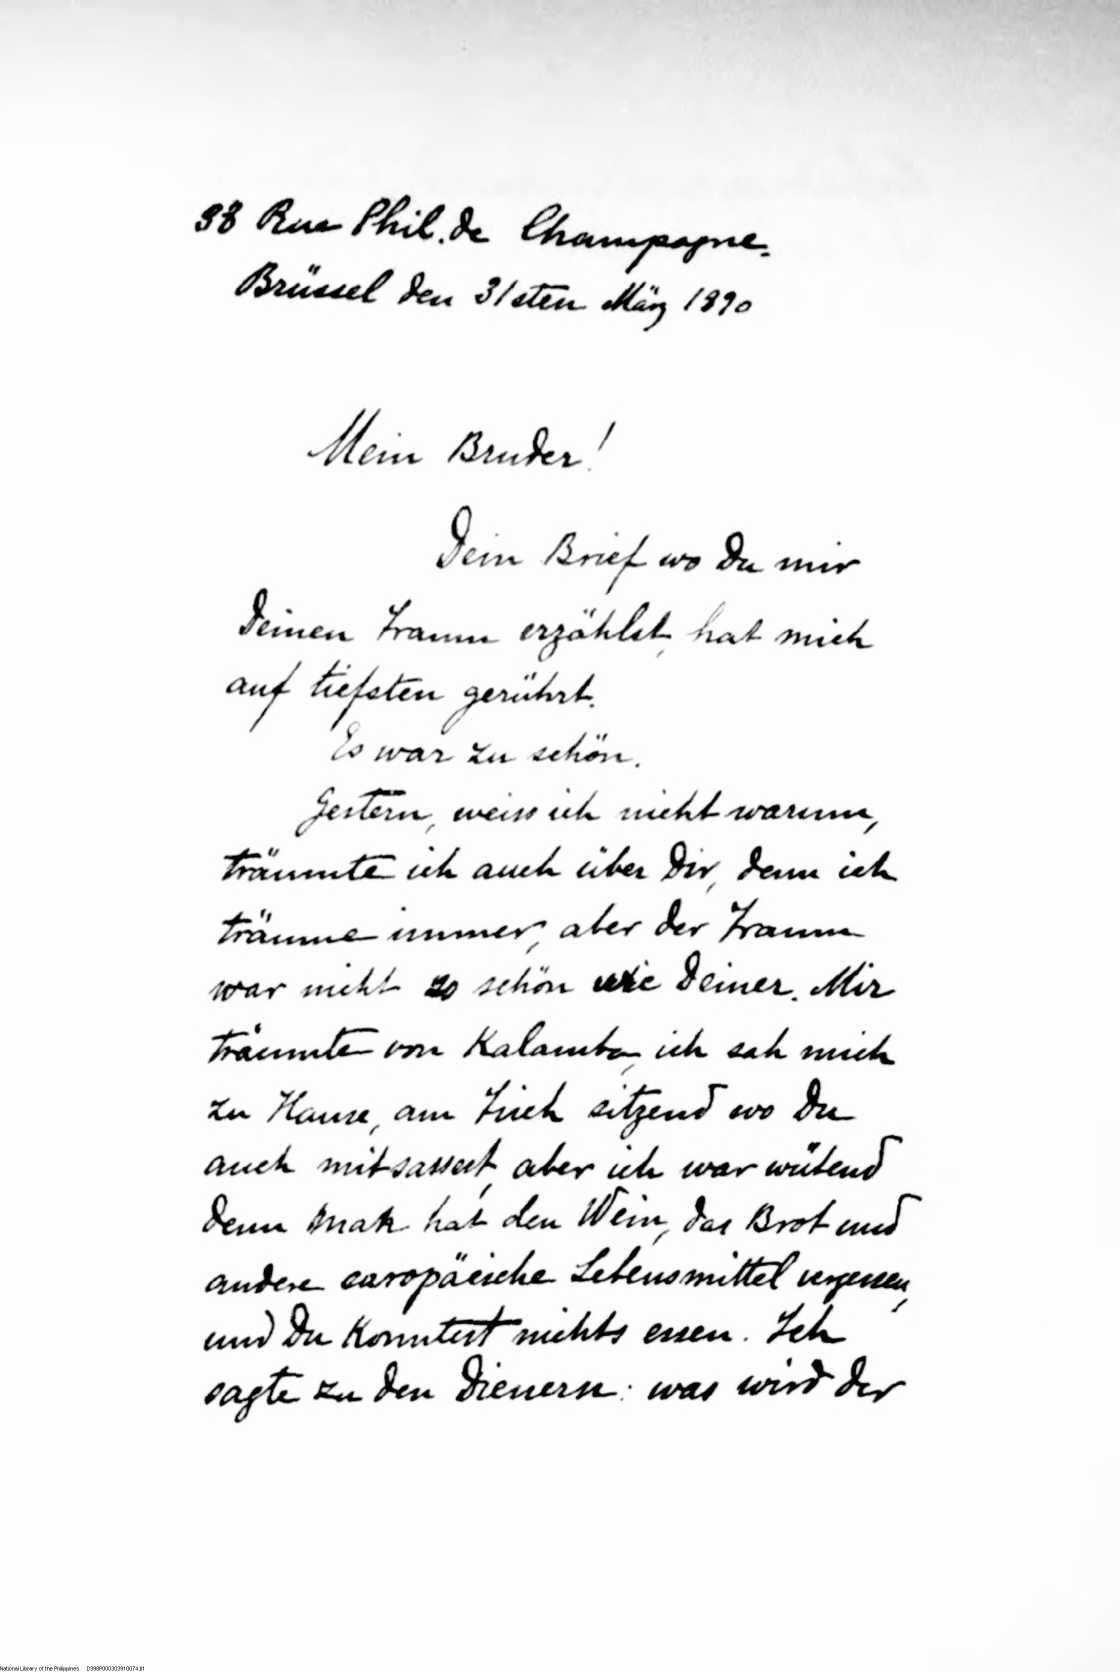 38 Rue Phil. de Champagne.
Brüssel den 31sten März 1890
Mein Bruder!
Dein Brief wo Du mir
Deinen Traum erzählst, hat mich
auf tiefsten gerührt.
Es war zu schön.
Gestern, weiss ich nicht warum,
träumte ich auch über Dir, denn ich
träume immer, aber der Traum
war nicht so schön wie Deiner. Mir
träumte von Kalamba, ich sah mich
zu Hause, am Tisch sitzend wo Du
auch mitsassest, aber ich war wütend
denn man hat den Wein, das Brot und
andere europäische Lebensmittel vergessen,
und Du konntest nichts essen. Ich
sagte zu den Dienern: was wird der
National Library of the Philippines